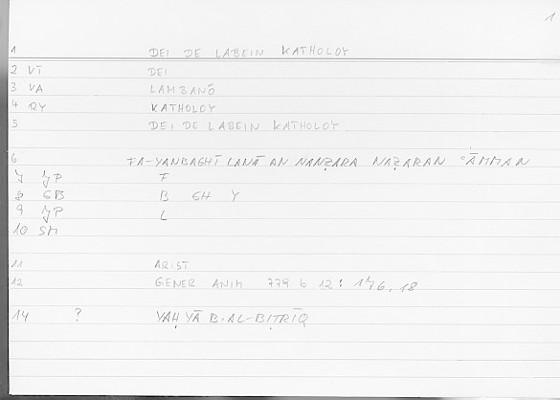 1
1 DEI DE LABEIN KATHOLOY
2 VT DEI
3 VA LAMBANŌ
4 RY KATHOLOY
5 DEI DE LABEIN KATHOLOY
6 FA-YANBAGHĪ LANĀ AN NANẒARA NAẒARAN ʿĀMMAN
7 JP F
8 GB B GH Y
9 JP L
10 SM
11 ARIST
12 GENER ANIM 779 b 12: 176.18
14 ? YAḤYĀ B.AL-BIṬRĪQ